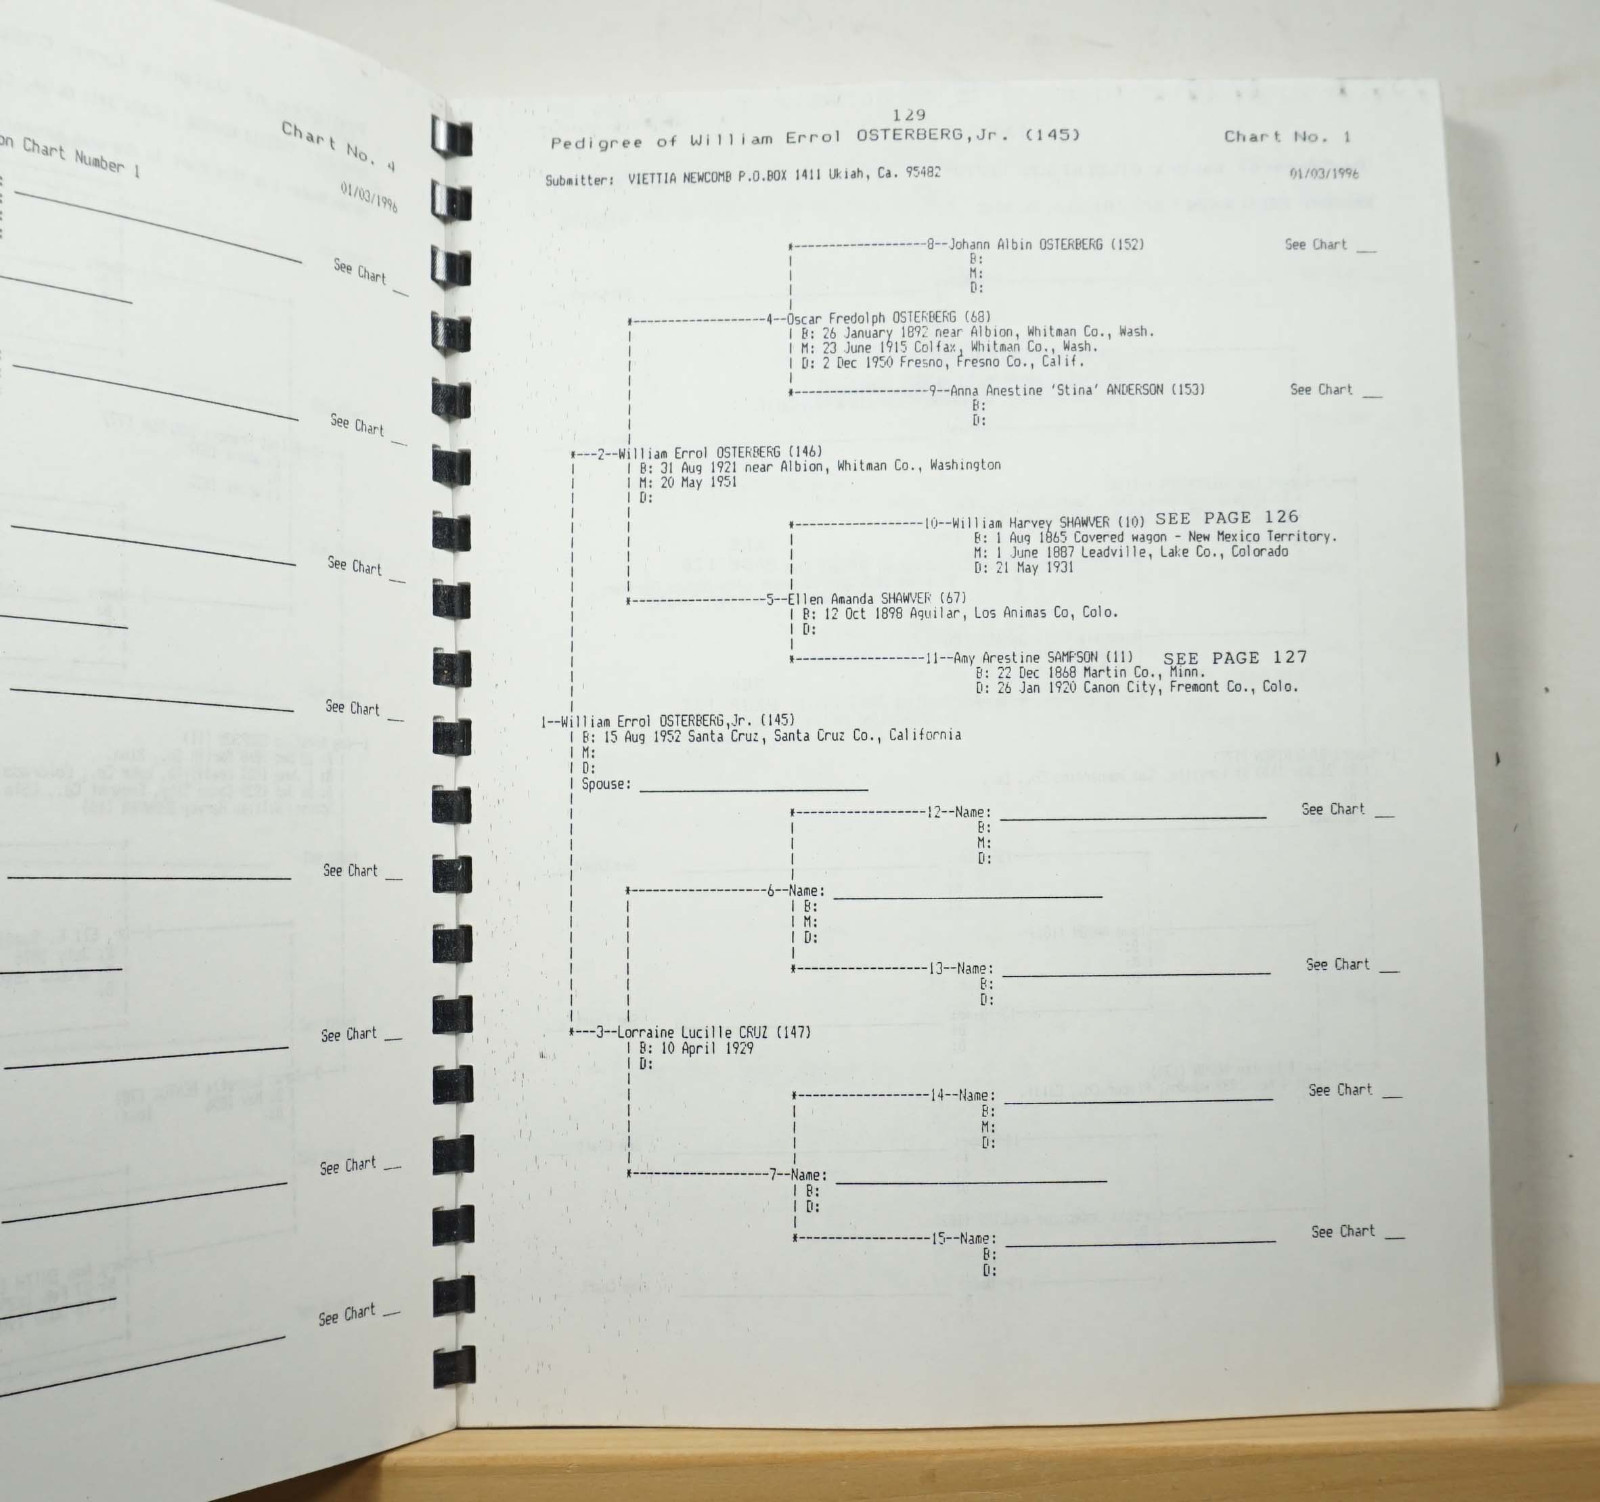 on Chart Number 1
Chart No. 4
01/03/1996
See Chart __
See Chart __
See Chart __
See Chart __
See Chart __
See Chart __
See Chart __
See Chart __
129
Pedigree of William Errol OSTERBERG,Jr. (145)
Chart No. 1
Submitter: VIETTIA NEWCOMB P.O.BOX 1411 Ukiah, Ca. 95482
01/03/1996
8--Johann Albin OSTERBERG (152) See Chart __
B:
M:
D:
4--Oscar Fredolph OSTERBERG (68)
B: 26 January 1892 near Albion, Whitman Co., Wash.
M: 23 June 1915 Colfax, Whitman Co., Wash.
D: 2 Dec 1950 Fresno, Fresno Co., Calif.
9--Anna Anestine 'Stina' ANDERSON (153) See Chart __
B:
D:
2--William Errol OSTERBERG (146)
B: 31 Aug 1921 near Albion, Whitman Co., Washington
M: 20 May 1951
D:
10--William Harvey SHAWVER (10) SEE PAGE 126
B: 1 Aug 1865 Covered wagon - New Mexico Territory.
M: 1 June 1887 Leadville, Lake Co., Colorado
D: 21 May 1931
5--Ellen Amanda SHAWVER (67)
B: 12 Oct 1898 Aguilar, Los Animas Co, Colo.
D:
11--Amy Arestine SAMPSON (11) SEE PAGE 127
B: 22 Dec 1868 Martin Co., Minn.
D: 26 Jan 1920 Canon City, Fremont Co., Colo.
1--William Errol OSTERBERG,Jr. (145)
B: 15 Aug 1952 Santa Cruz, Santa Cruz Co., California
M:
D:
Spouse: ____
12--Name: ____ See Chart __
B:
M:
D:
6--Name: ____
B:
M:
D:
13--Name: ____ See Chart __
B:
D:
3--Lorraine Lucille CRUZ (147)
B: 10 April 1929
D:
14--Name: ____ See Chart __
B:
M:
D:
7--Name: ____
B:
D:
15--Name: ____ See Chart __
B:
D: